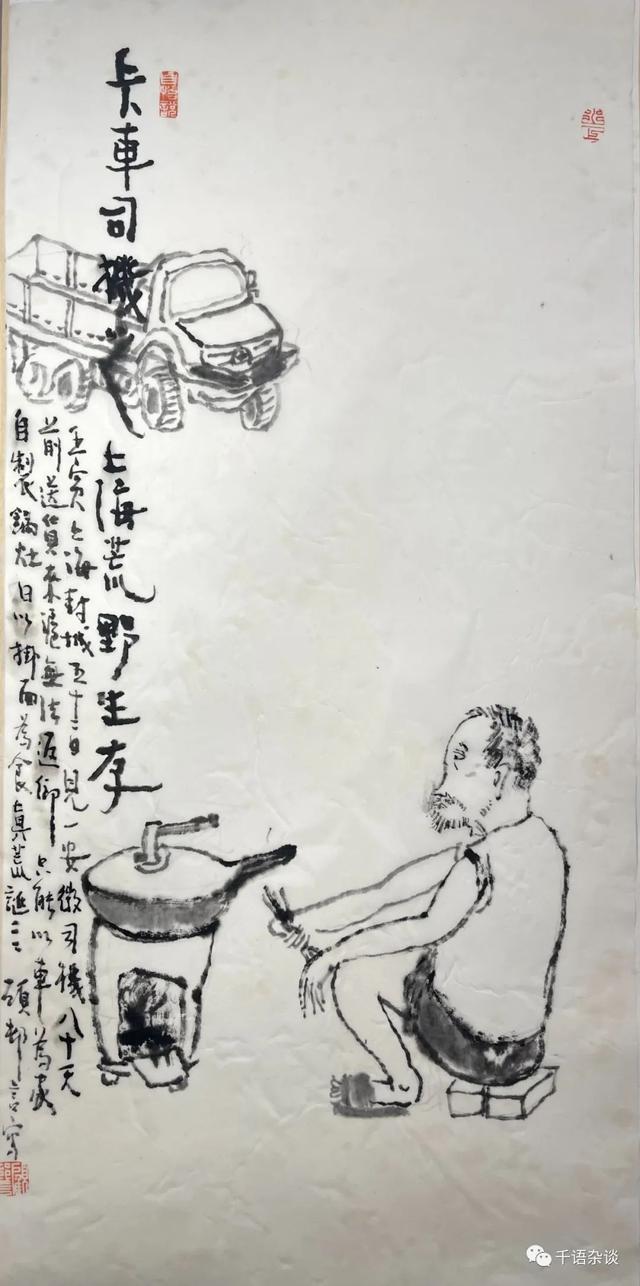 卡車司機之上海荒野生存
壬寅上海封城五十二日見一安徽司機八十天
前送貨來滬無法返鄉只能以車為家
自製鍋灶日以掛面為食真荒誕
千语杂谈